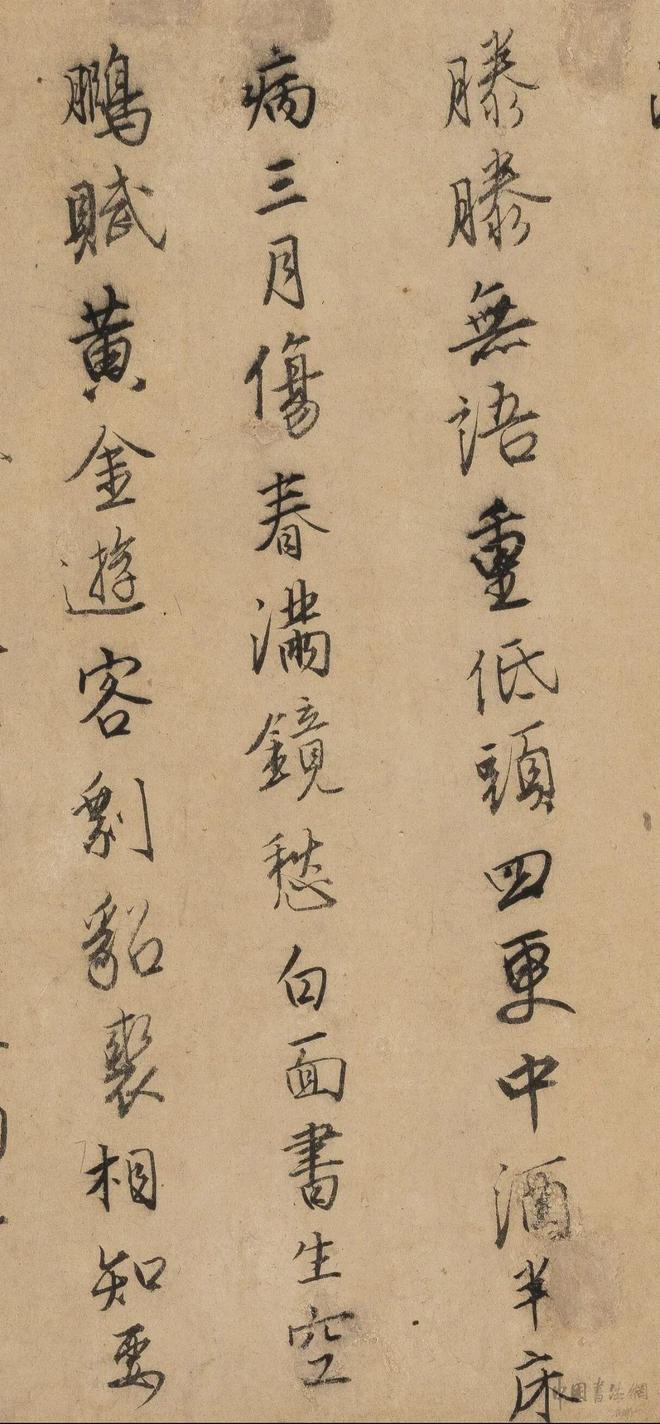 滕滕無語重低頭四更中酒半床
病三月傷春滿鏡愁白面書生空
鵬賦黃金遊客剩貂裘相知要
中國書法網